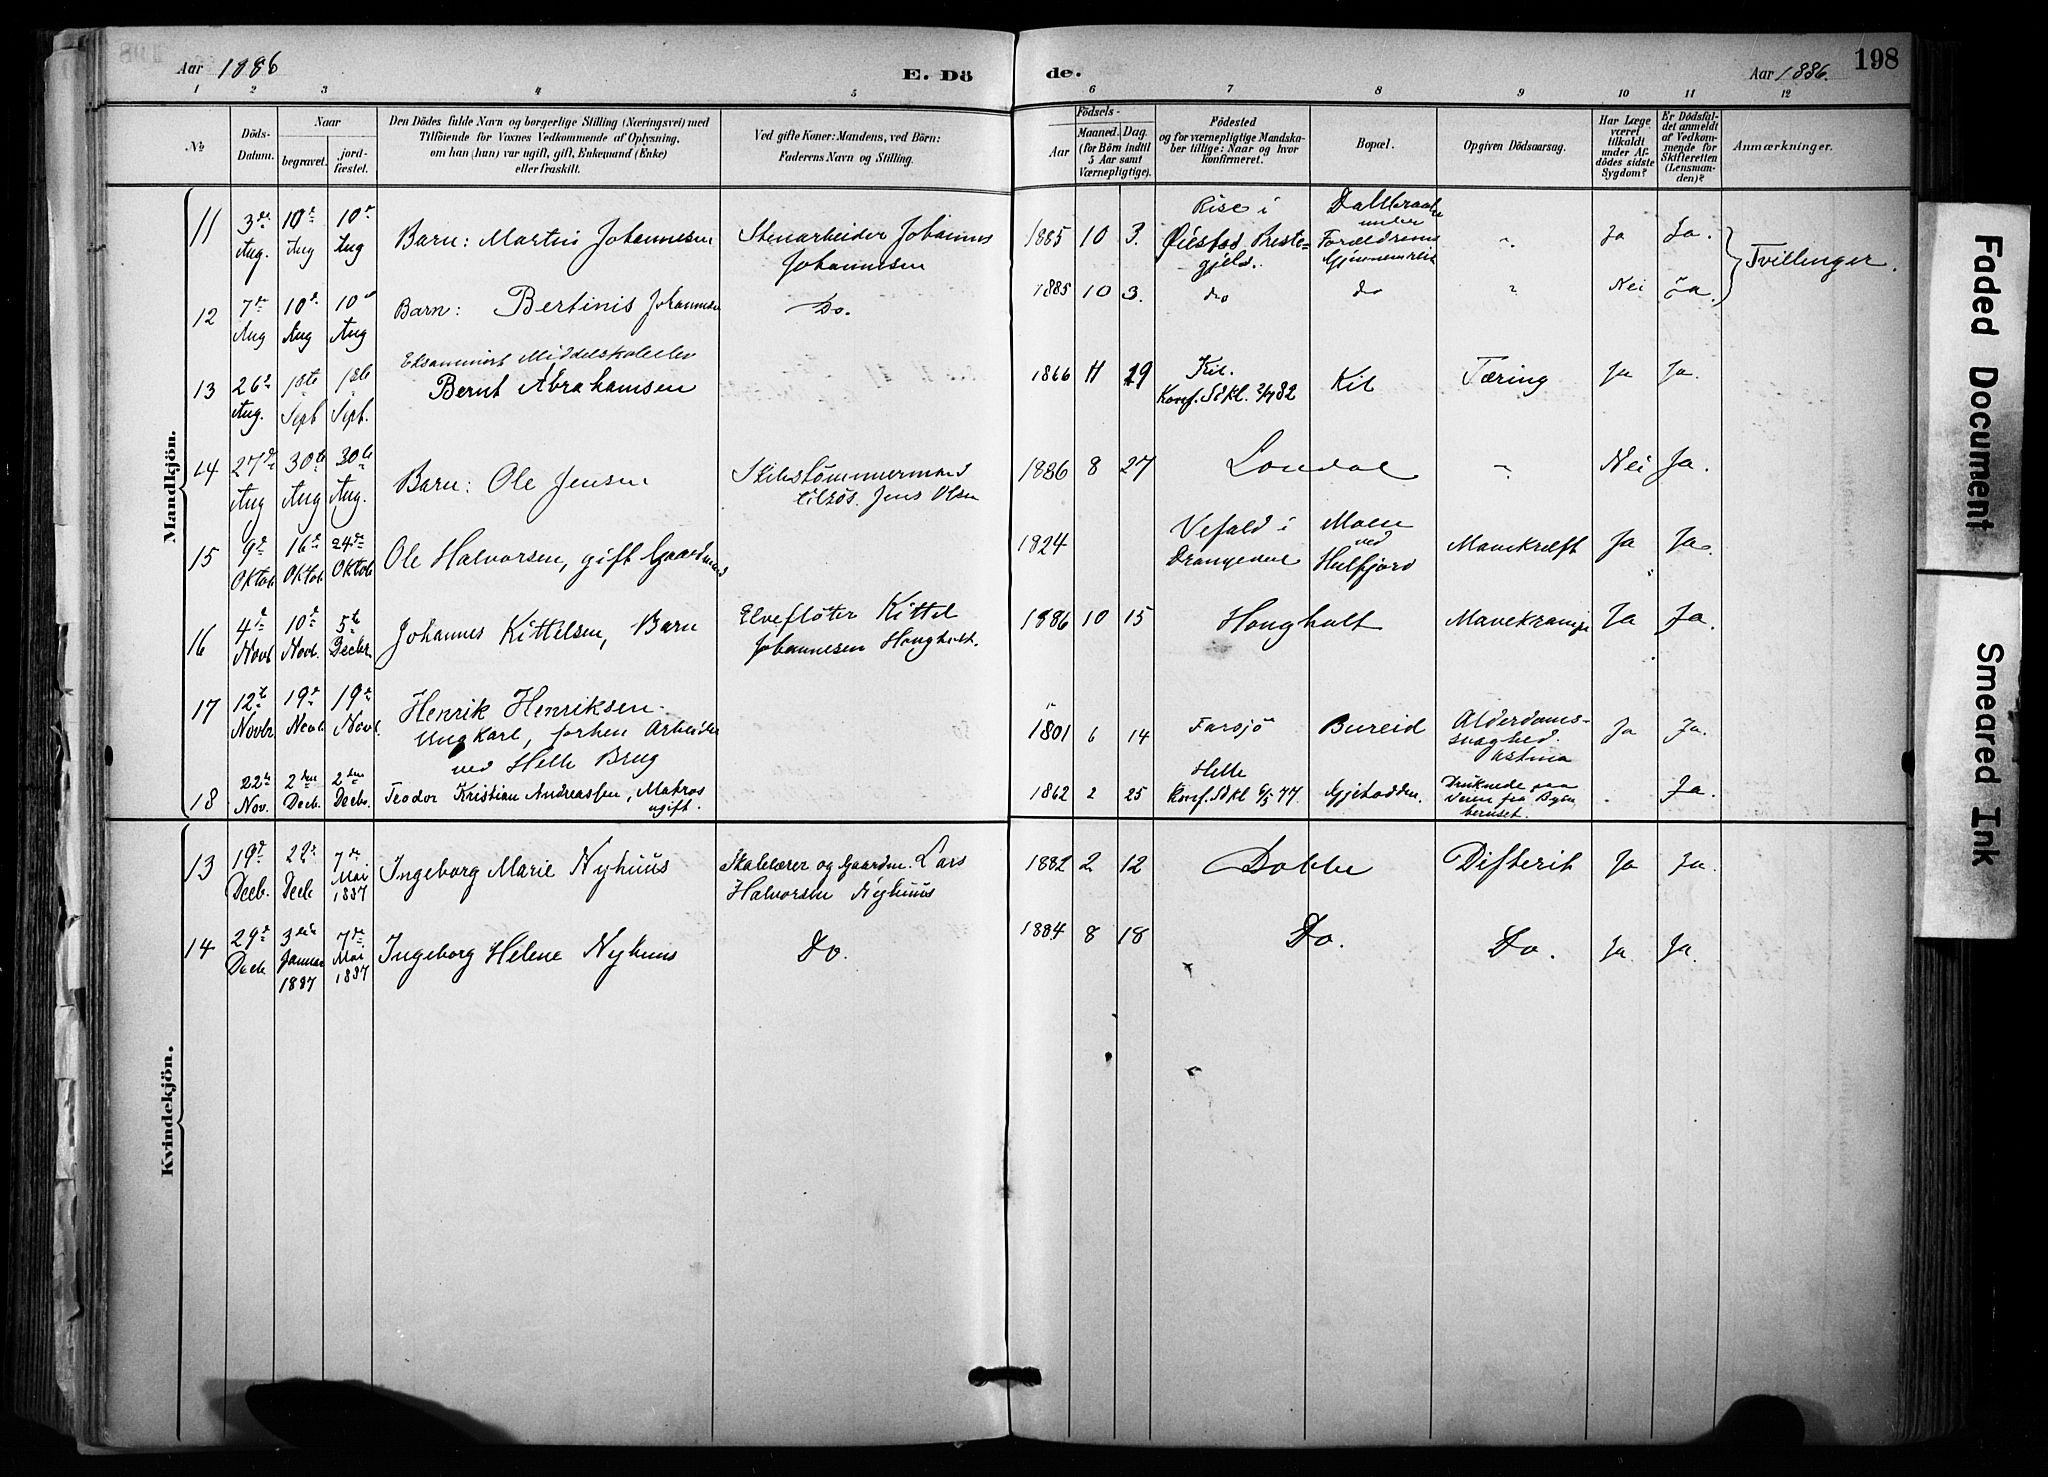 Aar 1886 E. Dö
de. Aar 1886. 198
1 2 3 4 5 6 7 8 9 10 11 12
№
Döds-
Datum.
Naar
begravet.
jord-
fæstet.
Den Dödes fulde Navn og borgerlige Stilling (Næringsvei) med
Tilföiende for Voxnes Vedkommende af Oplysning,
om han (hun) var ugift, gift, Enkemand (Enke)
eller fraskilt.
Ved gifte Koner: Mandens, ved Börn:
Faderens Navn og Stilling.
Födsels-
Aar
Maaned. Dag.
(for Börn indtil
5 Aar samt
Værnepligtige).
Födested
og for værnepligtige Mandska-
ber tillige: Naar og hvor
konfirmeret.
Bopæl.
Opgiven Dödsaarsag.
Har Læge
været
tilkaldt
under Af-
dödes sidste
Sygdom?
Er Dödsfal-
det anmeldt
af Vedkom-
mende for
Skifteretten
(Lensman-
den)?
Anmærkninger.
Mandkjön.
11 3die Aug. 10de Aug 10de Aug
Barn: Martin Johannesen
Stenarbeider Johannes
Johannesen
1885 10 3.
Rise i
Øiestad Preste-
gjeld.
under
Forældrenes
" Ja Ja.
Tvillinger.
12 7de Aug 10de Aug 10de Aug
Barn: Bertinis Johannesen
Do.
1885 10 3. do do " Nei Ja.
13 26de Aug. 1ste Sept 1ste Sept.
Eksamineret Middelskoleelev
Bernt Abrahamsen
1866 11 29
Kil.
Konf. Skl. 2/7 82
Kil Tæring Ja Ja.
14 27de Aug 30te Aug 30te Aug.
Barn: Ole Jensen
Skibstømmermand
tilsøs. Jens Olsen
1886 8 27 Londal " Nei Ja.
15 9de Oktob 16de Oktob 24de Oktob
Ole Halvorsen, gift Gaardmand
1824
Vefald i
Drangedal
Moen
ved
Hulfjord
Mavekræft Ja Ja.
16 4de Novb. 10de Novb. 5te Decbr.
Johannes Kittelsen, Barn
Elvefløter Kittel
Johannesen Hougholt.
1886 10 15 Hougholt Mavekrampe Ja Ja.
17 12te Novbr 19de Novb 19de Novb.
Henrik Henriksen.
Ungkarl, forhen Arbeider
ved Helle Brug
1801 6 14 Farsjö Bureid
Alderdoms-
svaghed.
Astma
Ja Ja.
18 22de Nov. 2den Decb. 2den Decbr.
Teodor Kristian Andreassen, Matros
ugift.
1862 2 25
Helle
Konf. Skl 6/5 77.
Gjetodden.
Druknede paa
Veien fra Byen
beruset.
Ja.
Kvindekjön.
13 19de Decb. 22de Decb 7de Mai 1887
Ingeborg Marie Nyhuus
Skolelærer og Gaardm. Lars
Halvorsen Nyhuus
1882 2 12 Dobbe Difterit Ja Ja.
14 29de Decb 3die Januar 1887 7de Mai 1887
Ingeborg Helene Nyhuus
Do.
1884 8 18 Do. Do. Ja Ja.
Faded Document
Smeared Ink